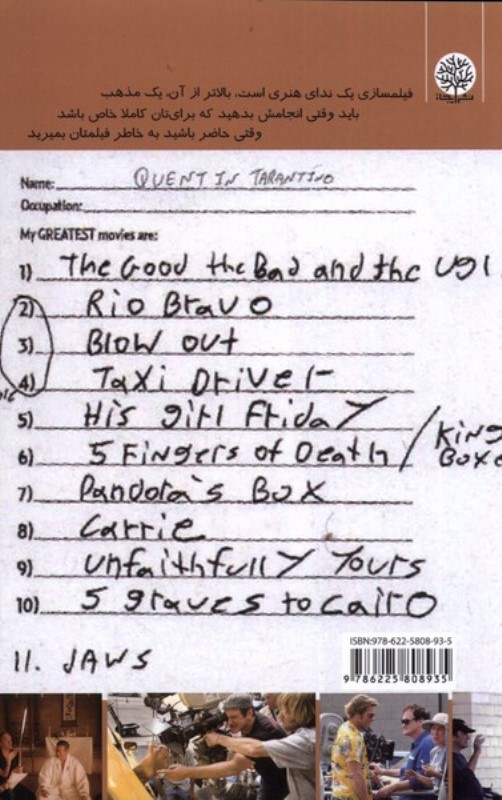 فیلمسازی یک ندای هنری است، بالاتر از آن، یک مذهب
باید وقتی انجامش بدهید که برای‌تان کاملا خاص باشد
وقتی حاضر باشید به خاطر فیلمتان بمیرید
Name: QUENTIN TARANTINO
Occupation:
My GREATEST movies are:
1) The Good the Bad and the Ugl
2) Rio Bravo
3) Blow out
4) Taxi Driver
5) His girl Friday
6) 5 Fingers of Death / King Boxe
7) Pandora's Box
8) Carrie
9) unfaithfully Yours
10) 5 graves to Cairo
11. JAWS
ISBN:978-622-5808-93-5
9 786225 808935